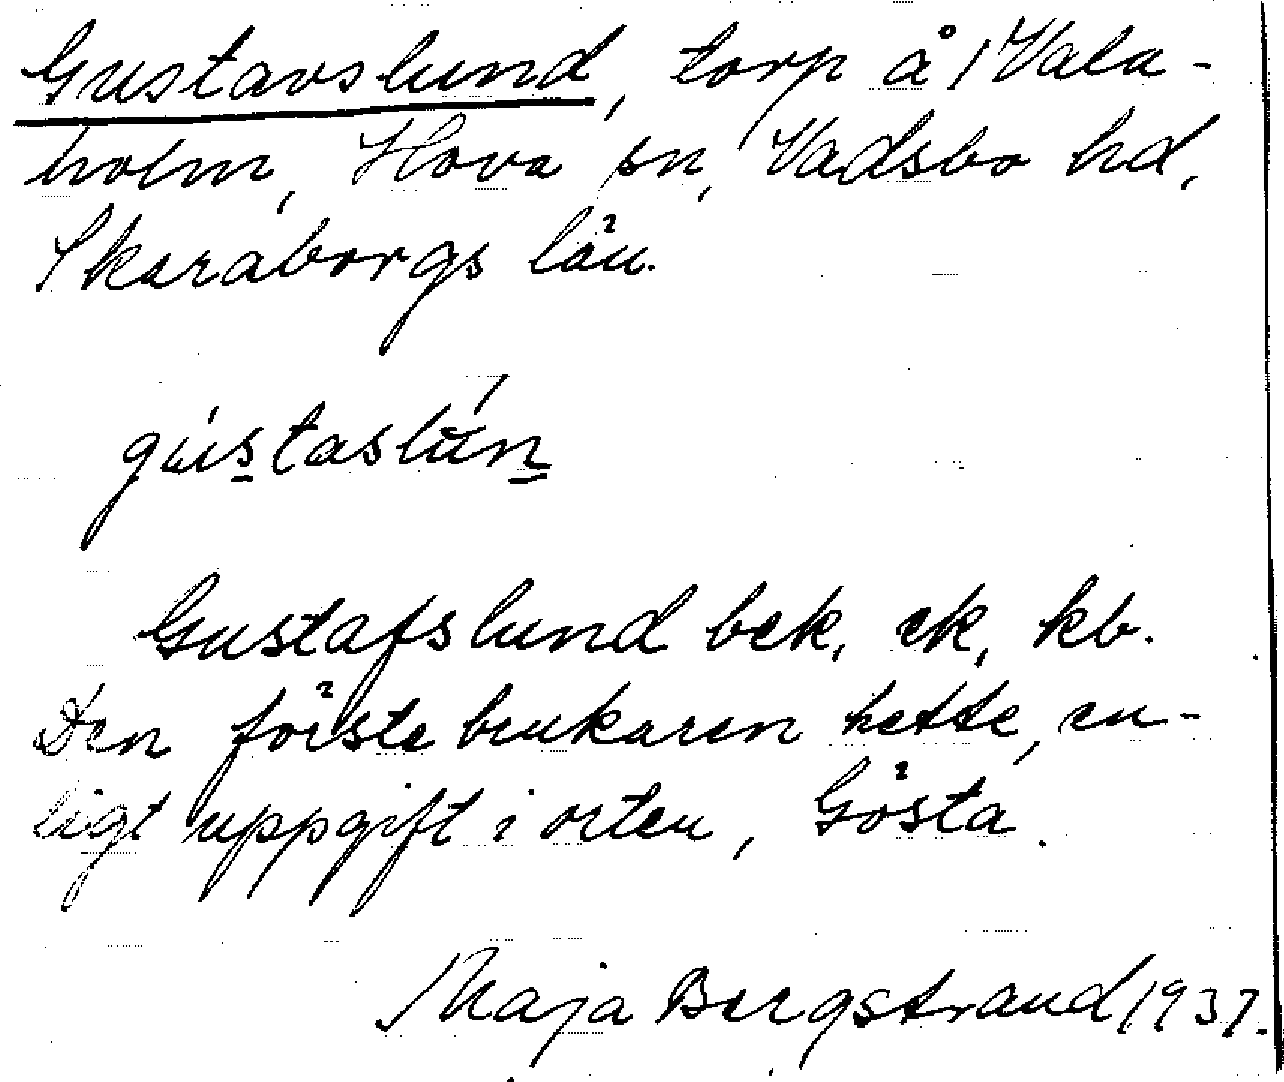 Gustavslund, torp å Vala-
holm, Hova sn, Vadsbo hd,
Skaraborgs län.
gústaslún
Gustafslund bek, ek, kb.
Den förste brukaren hette, en-
ligt uppgift i orten, Gösta.
Maja Bergstrand 1937.